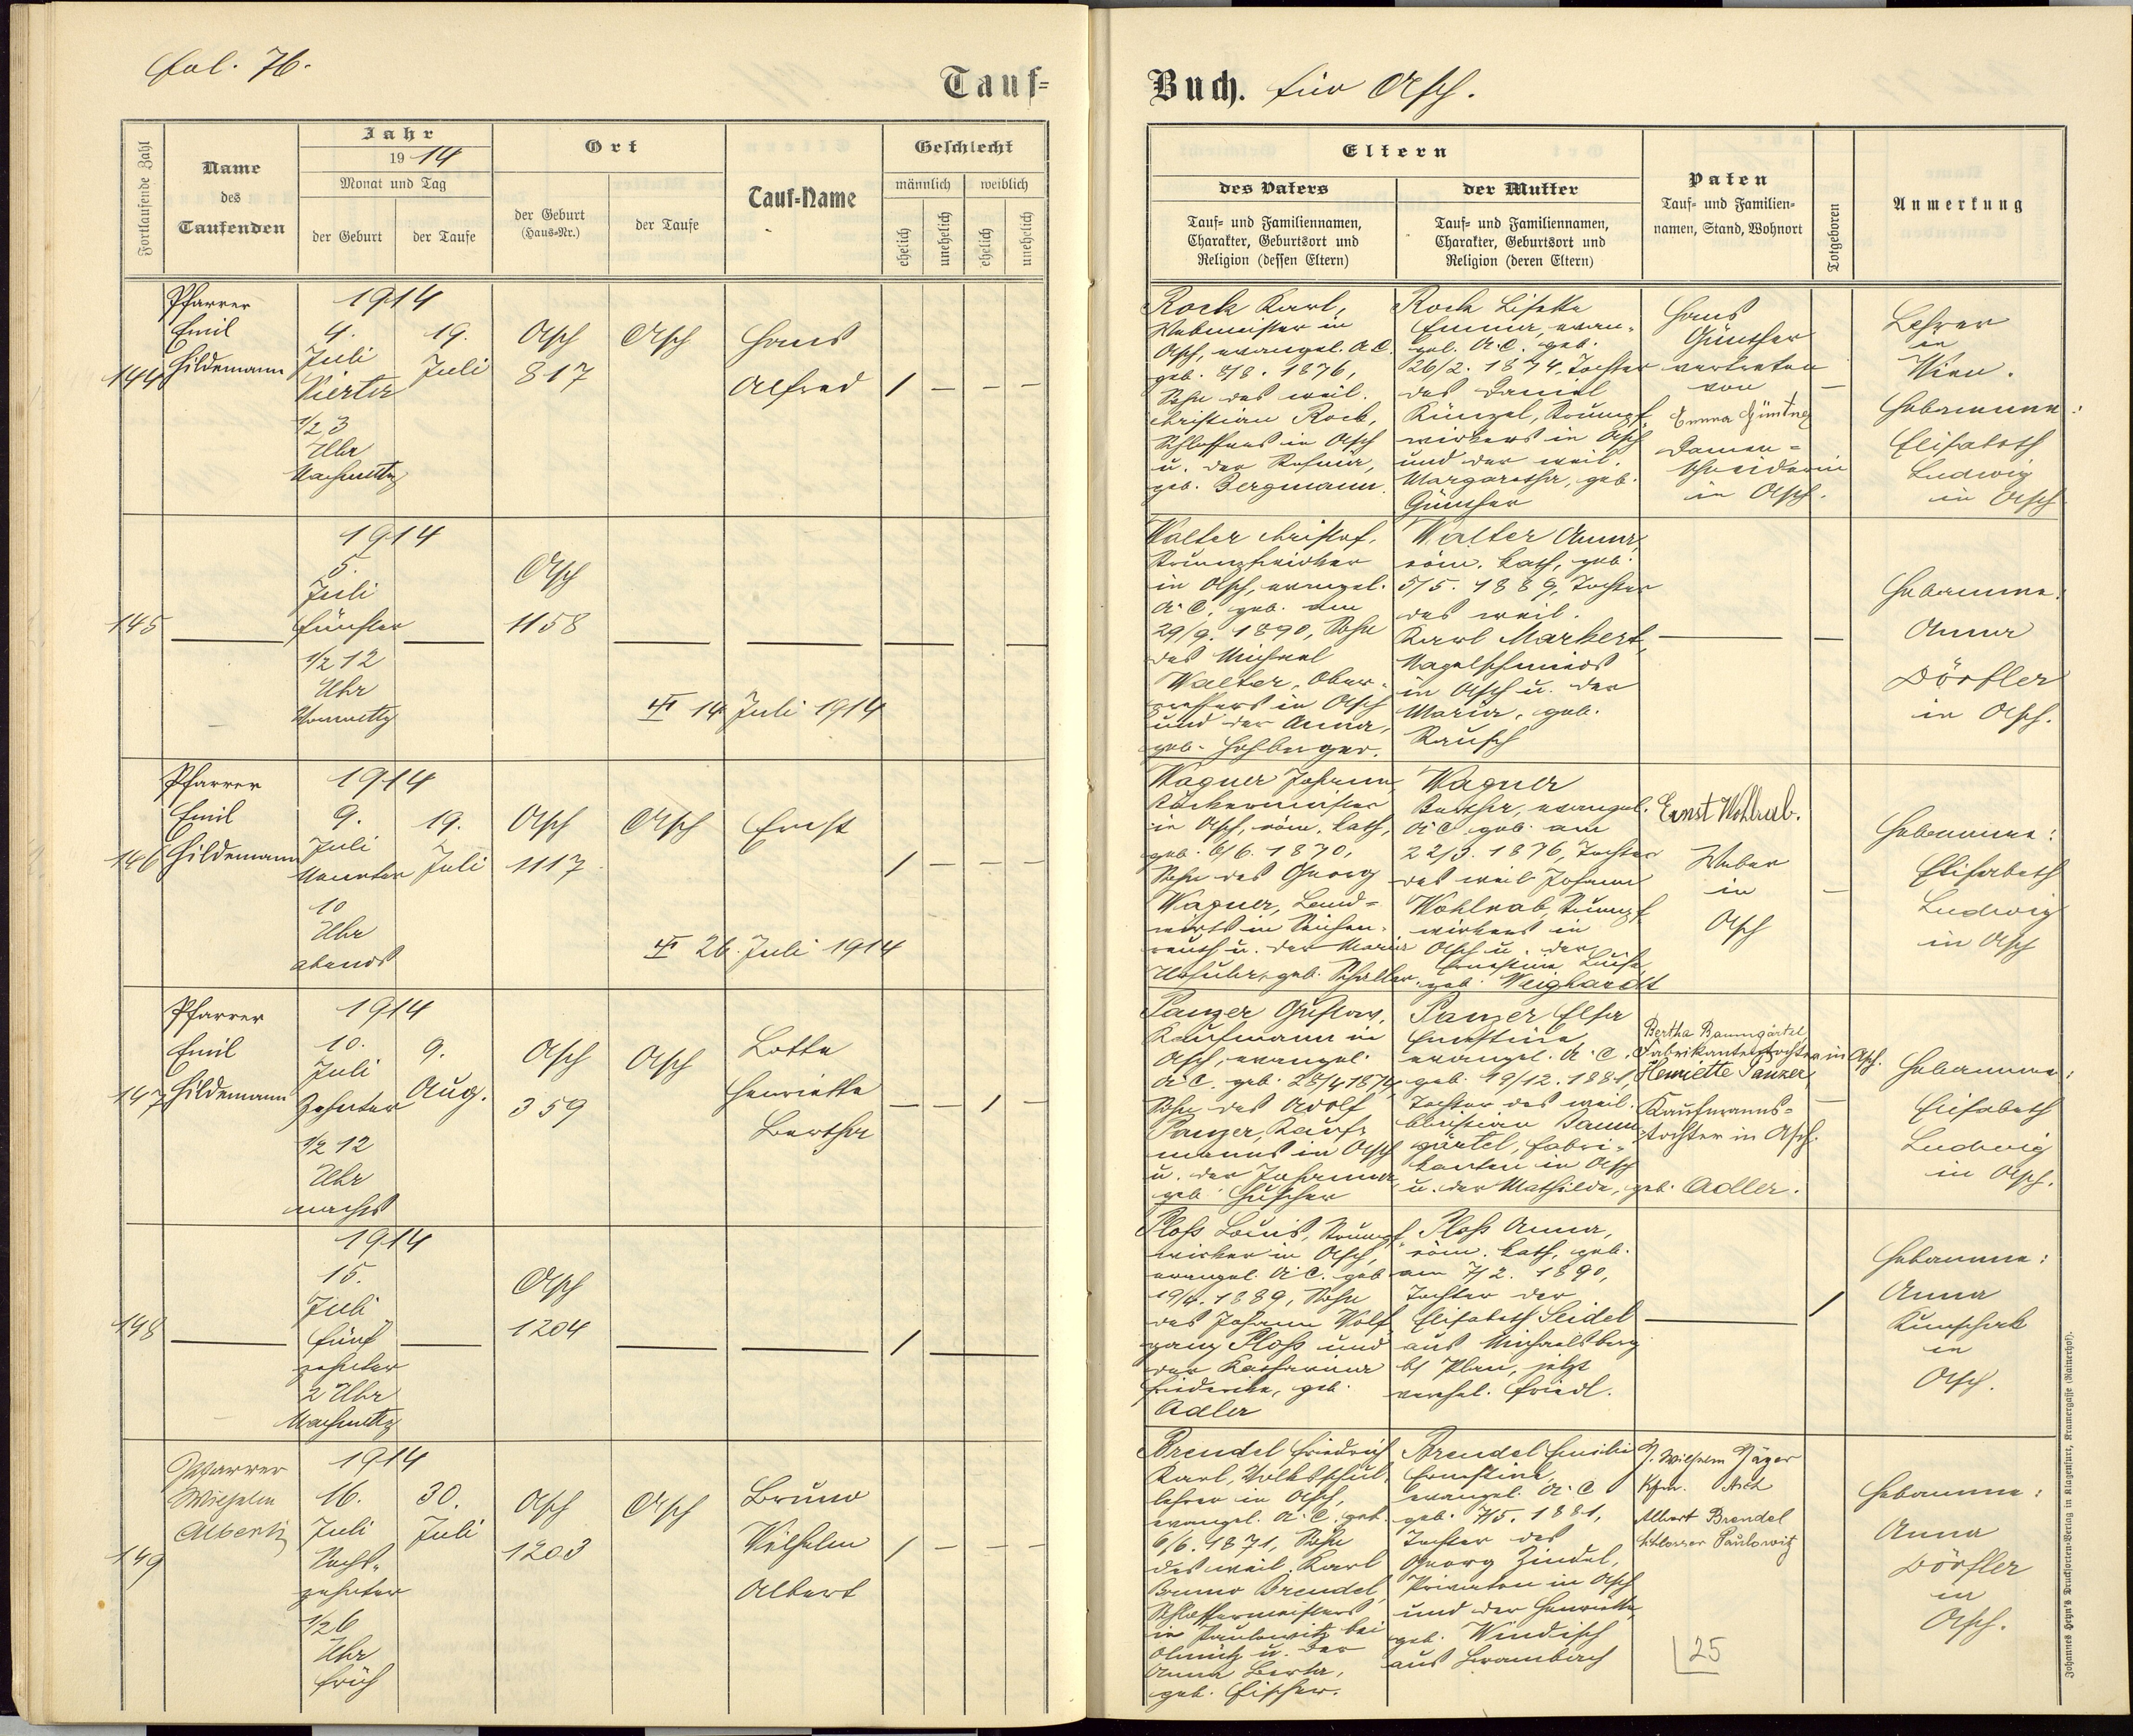 fol. 76.
Tauf=
Buch. für Asch.
Fortlaufende Zahl
Name
des
Taufenden
Jahr
1914
Monat und Tag
der Geburt
der Taufe
Ort
der Geburt
(Haus-Nr.)
der Taufe
Tauf-Name
Geschlecht
männlich
weiblich
ehelich
unehelich
ehelich
unehelich
Eltern
des Vaters
Tauf- und Familiennamen,
Charakter, Geburtsort und
Religion (dessen Eltern)
der Mutter
Tauf- und Familiennamen,
Charakter, Geburtsort und
Religion (deren Eltern)
Paten
Tauf- und Familien-
namen, Stand, Wohnort
Totgeboren
Anmerkung
144
Pfarrer
Emil
Hildemann
1914
4.
Juli
Vierter
1/2 3
Uhr
Nachmittg
19.
Juli
Asch
817
Asch
Hans
Alfred
Rock Karl,
Webmeister in
Asch, evangel. A.C.
geb. 8/8. 1876,
Sohn des weil.
Christian Rock,
Schlossers in Asch
u. der
geb. Bergmann.
Rock Lisette
Emma, evan-
gel. A.C. geb.
26/2. 1874, Tochter
des Daniel
Künzel, Strumpf-
wirkers in Asch
und der weil.
Margaretha, geb.
Günther
Hans
Günther
vertreten
von
Emma Günther
Damen-
schneiderin
in Asch.
Lehrer
in
Wien.
Hebamme:
Elisabeth
Ludwig
in Asch
145
1914
5.
Juli
Fünfter
1/2 12
Uhr
Vormittg
Asch
1158
14 Juli 1914
Walter Christof,
Strumpfwirker
in Asch, evangel.
A.C. geb. am
29/9. 1890, Sohn
des Michael
Walter,
in Asch
und der Anna,
geb. Hohberger.
Walter Anna,
röm. kath, geb.
5/5. 1889, Tochter
des weil.
Karl Markert,
Nagelschmieds
in Asch u. der
Maria, geb.
Rausch
Hebamme:
Anna
Dörfler
in Asch.
146
Pfarrer
Emil
Hildemann
1914
9.
Juli
Neunter
10
Uhr
abends
19.
Juli
Asch
1117
Asch
Ernst
26. Juli 1914
Wagner Johann
in Asch, röm. kath,
geb. 6/6. 1870,
Sohn des Georg
Wagner, Land-
wirts in
reuth u. der Maria
geb. Schaller.
Wagner
Bertha, evangel.
A.C. geb. am
22/3. 1876, Tochter
des weil Johann
Wohlrab, Strumpf-
wirkers in
Asch u. der
Ernestine Luise,
geb. Weighardt
Ernst Wohlrab.
Weber
in
Asch
Hebamme:
Elisabeth
Ludwig
in Asch
147
Pfarrer
Emil
Hildemann
1914
10.
Juli
Zehnter
1/2 12
Uhr
nachts
9.
Aug.
Asch
359
Asch
Lotte
Henriette
Bertha
Panzer Gustav,
Kaufmann in
Asch, evangel.
A.C. geb. 28/4 1874
Sohn des Adolf
Panzer, Kauf-
manns in Asch
u. der Johanna,
geb. Hüscher
Panzer Elsa
Ernestine,
evangel. A.C.,
geb. 19/12. 1881,
Tochter des weil.
Christian Baum-
gärtel, Fabri-
kanten in Asch
u. der Mathilde, geb. Adler.
Bertha Baumgärtel
Fabrikantenstochter in Asch.
Henriette Panzer,
Kaufmanns-
tochter in Asch.
Hebamme:
Elisabeth
Ludwig
in Asch.
148
1914
15.
Juli
Fünf
zehnter
2 Uhr
Nachmittg
Asch
1204
Ploß Louis, Strumpf-
wirker in Asch,
evangel. A.C. geb.
19/4. 1889, Sohn
des Johann Wolf-
gang Ploß und
der Katharina
Friederike, geb.
Adler
Ploß Anna,
röm. kath, geb.
am 7/2. 1890,
Tochter der
Elisabeth Seidel
aus Michaelsberg
b/ Plan, jetzt
verehel. Friedl.
Hebamme:
Anna
Künschek
in
Asch.
149
Pfarrer
Wilhelm
Alberti
1914
16.
Juli
Sechs-
zehnter
1/2 6
Uhr
früh
30.
Juli
Asch
1203
Asch
Bruno
Wilhelm
Albert
Brendel Friedrich
Karl, Volksschul-
lehrer in Asch,
evangel. A.C. geb.
6/6. 1871, Sohn
des weil. Karl
Bruno Brendel,
Schlossermeisters
in Paulowitz bei
Olmütz u. der
Anna Berta,
geb. Fischer.
Brendel Emilie
Ernestine,
evangel. A.C.
geb. 7/5. 1881,
Tochter des
Georg Zindel,
Privaten in Asch
und der Henriette,
geb. Windisch
aus Brambach
J. Wilhelm Jäger
Kfm. Asch
Albert Brendel
Schlosser Paulowitz
25
Hebamme:
Anna
Dörfler
in
Asch.
Johannes Heyn's Drucksorten-Verlag in Klagenfurt, Kramergasse (Rainerhof).